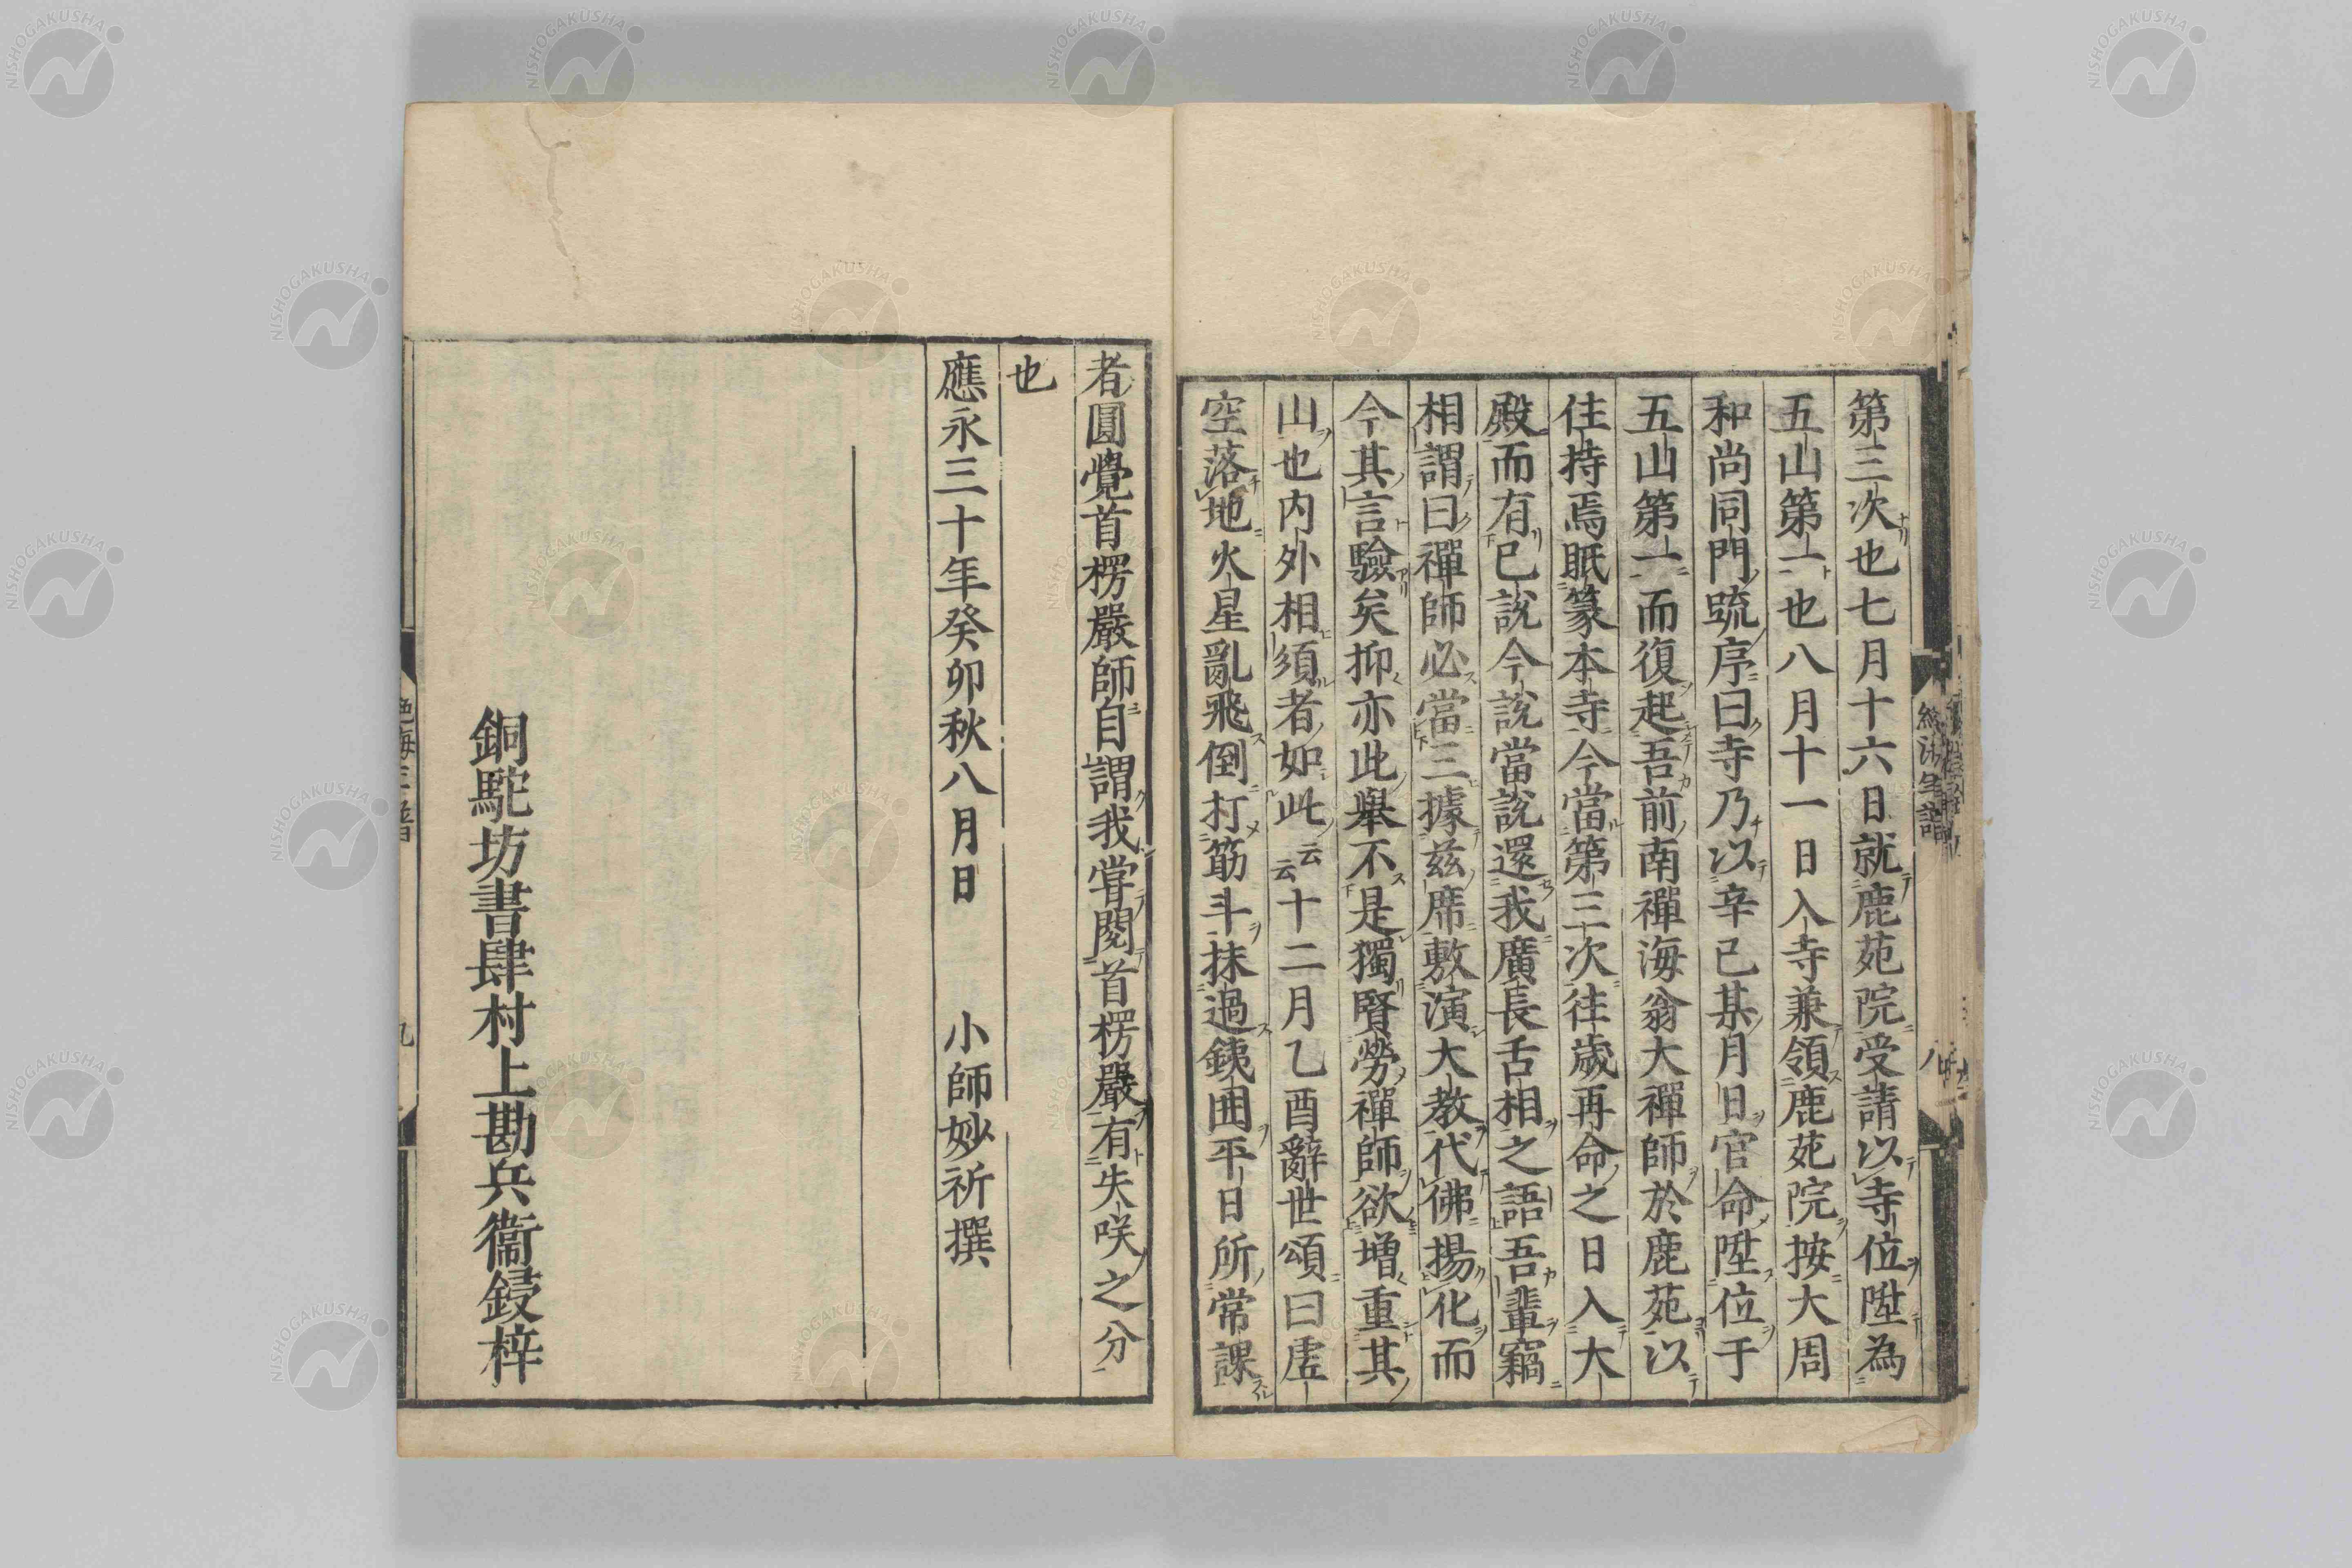 第三次也七月十六日就鹿苑院受請以寺位陞為
五山第一也八月十一日入寺兼領鹿苑院按大周
和尚同門疏序曰寺乃以辛已某月日官命陞位于
五山第一而復起吾前南禪海翁大禪師於鹿苑以
住持焉眂篆本寺今當第三次往歲再命之日入大
殿而有已說今說當說還我廣長舌相之語吾輩竊
相謂曰禪師必當三據兹席敷演大教代佛揚化而
今其言驗矣抑亦此舉不是獨賢勞禪師欲增重其
山也内外相須者如此云云十二月乙酉辭世頌曰虚
空落地火星亂飛倒打筋斗抹過銕囲平日所常課
者圓覺首楞嚴師自謂我甞閱首楞嚴有失咲之分
也
應永三十年癸卯秋八月日 小師妙祈撰
銅駝坊書肆村上勘兵衞鋟梓
NISHOGAKUSHA